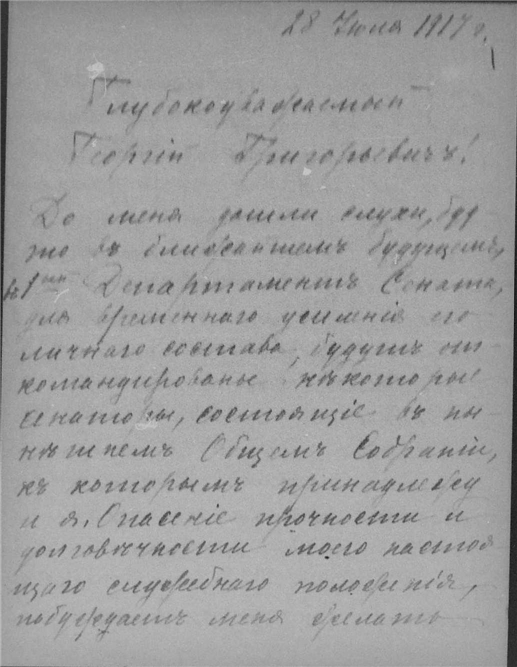 28 Июля 1917 г.
Глубокоуважаемый
Георгій Григорьевичъ!
До меня дошли слухи, буд-
то въ ближайшемъ будущемъ,
въ 1ый Департаментъ Сената,
для временнаго усиленія его
личнаго состава, будутъ от-
командированы нѣкоторые
сенаторы, состоящіе въ ны-
нѣшнемъ Общемъ Собраніи,
къ которымъ принадлежу
и я. Опасеніе прочности и
долговѣчности моего настоя
щаго служебнаго положенія,
побуждаетъ меня желать